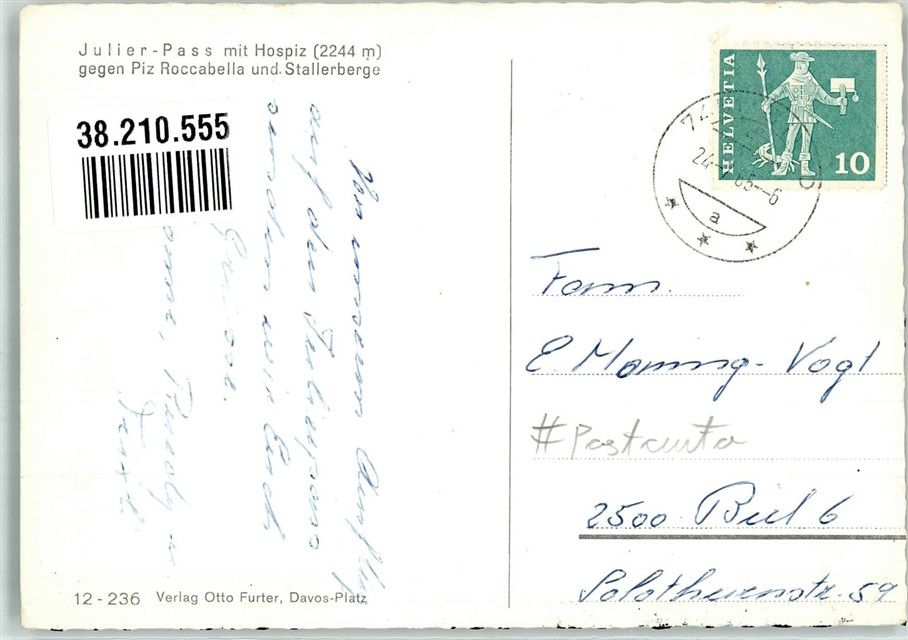 Julier-Pass mit Hospiz (2244 m)
gegen Piz Roccabella und Stallerberge
38.210.555
Von unserem Ausflug
auf den Julierpass
senden wir Euch
Grüsse.
HELVETIA
10
74
24
65-6
a
Fam.
E Mornng-Vogl
#Postcuto
2500 Biel 6
Solothurnstr. 59
12-236 Verlag Otto Furter, Davos-Platz